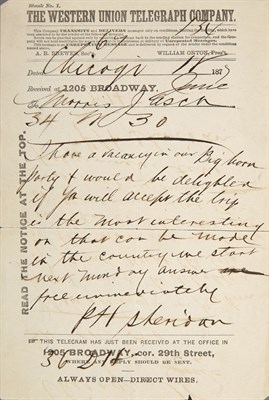 Blank No. 1.
THE WESTERN UNION TELEGRAPH COMPANY.
This Company TRANSMITS and DELIVERS messages only on conditions, limiting its liability, which have
A. R. BREWER, Sec'y. WILLIAM ORTON, Pres't.
Dated Chicago 18 187
Received at 1205 BROADWAY. June
To Morris J Asch
34 W 30
I have a vacancy in our Big horn
party & would be delighted
if you will accept the trip
is the most interesting
on that can be made
in the country we start
next Monday answer
free immediately
PH Sheridan
READ THE NOTICE AT THE TOP.
THIS TELEGRAM HAS JUST BEEN RECEIVED AT THE OFFICE IN
1205 BROADWAY, cor. 29th Street,
WHERE ANY REPLY SHOULD BE SENT.
36
ALWAYS OPEN—DIRECT WIRES.